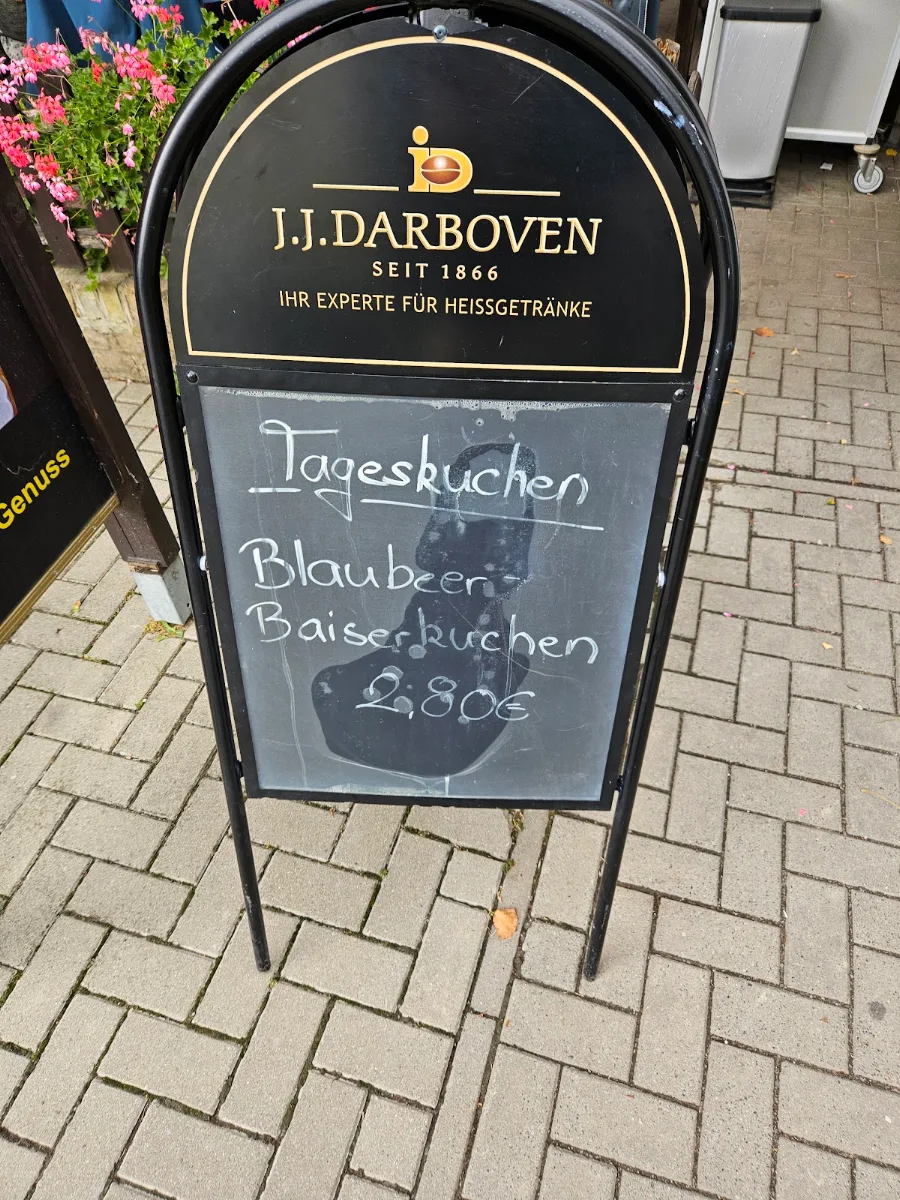 J.J.DARBOVEN
SEIT 1866
IHR EXPERTE FÜR HEISSGETRÄNKE
Tageskuchen
Blaubeer-
Baiserkuchen
2,80€
Genuss